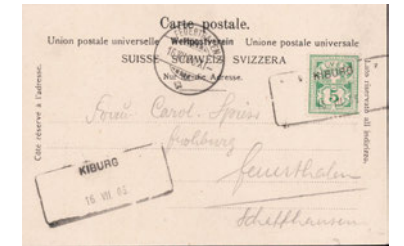 Carte postale.
Union postale universelle Weltpostverein Unione postale universale
SUISSE SCHWEIZ SVIZZERA
Nur für die Adresse.
Côté réservé à l'adresse.
Lato riservato all indirizzo.
KIBURG
5
Carol.
Feuerthalen
Schaffhausen
KIBURG
16 VII 03